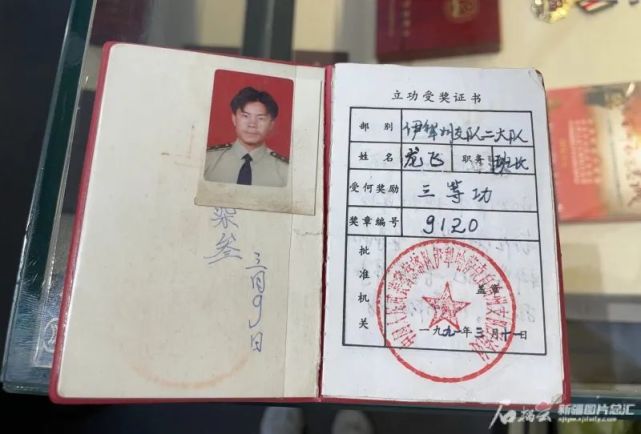 柒叁
三月9日
立功受奖证书
部别 伊犁州支队二大队
姓名 龙飞 职务 班长
受何奖励 三等功
奖章编号 9120
批准机关
盖章
一九九一年三月十一日
石榴云 新疆图片总汇